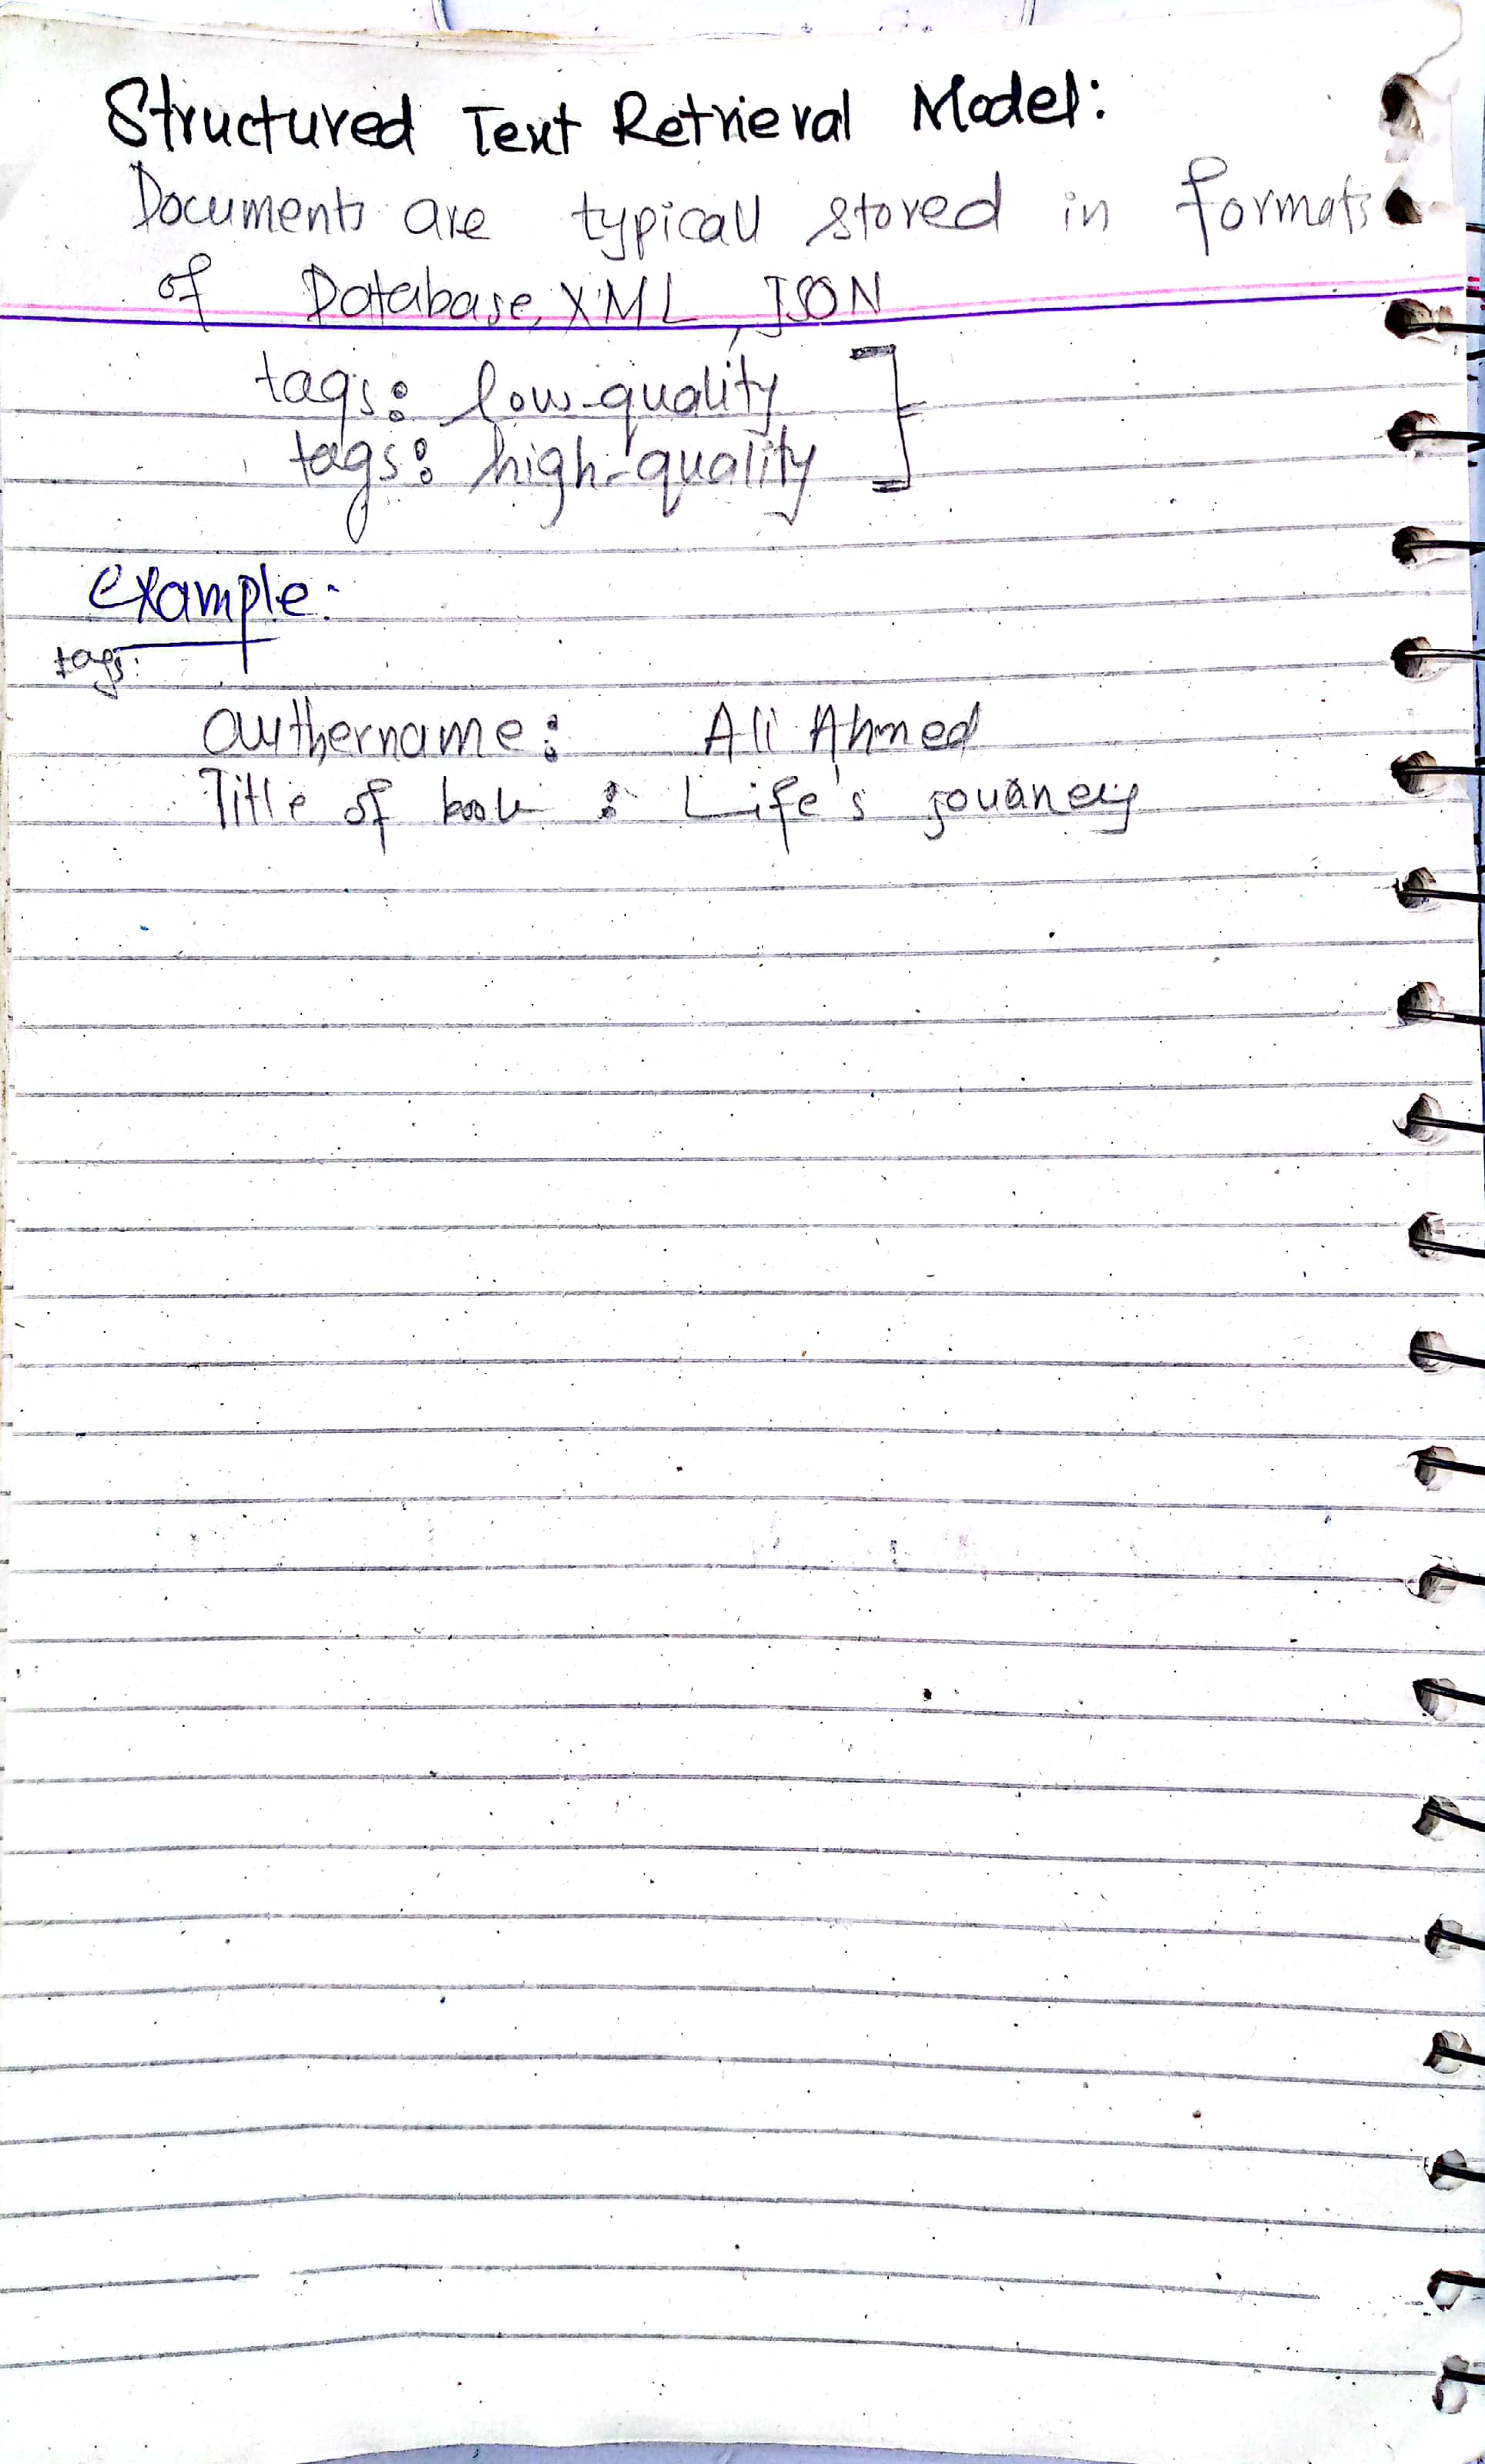 Structured Text Retrieval Model:
Documents are typicall stored in formats
of Database, XML, JSON
tags: low-quality
tags: high-quality
example:
tags:
authername: Ali Ahmed
Title of book : Life's